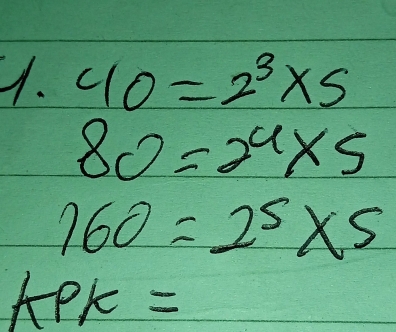 4. 40 = 2³ × 5
80 = 2⁴ × 5
160 = 2⁵ × 5
KPK =